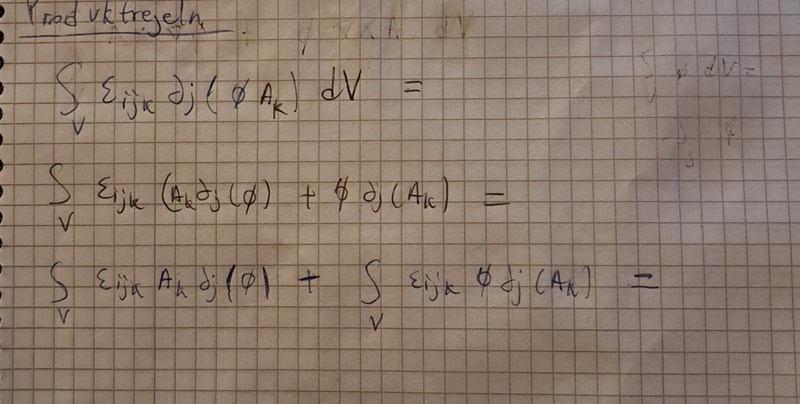 Produktregeln
∫_V ε_ijk ∂j(ϕ A_k) dV =
∫_V ε_ijk (A_k ∂j(ϕ) + ϕ ∂j(A_k) =
∫_V ε_ijk A_k ∂j(ϕ) + ∫_V ε_ijk ϕ ∂j(A_k) =